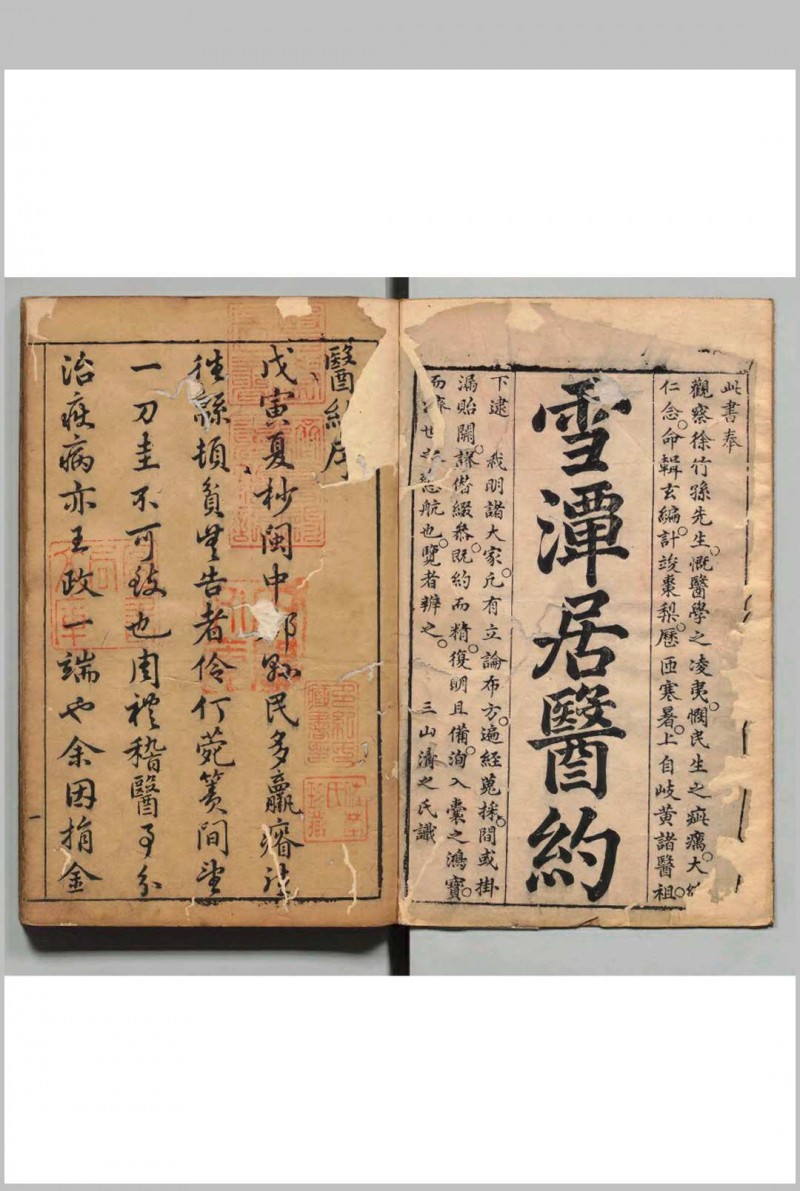 此書奉
觀察徐竹孫先生。慨醫學之凌夷。憫民生之疵癘。大
仁念。命輯玄編。計竣棗梨。歷匝寒暑。上自岐黃諸醫祖。
雪潭居醫約
下逮 我明諸大家。凡有立論布方。遍經蒐採。間或掛
漏貽闕。謬僭綴叅。既約而精。復明且備。洵入囊之鴻寶。
而 世 慈航也。覽者辨之。 三山濟之氏識
醫約序
戊寅夏杪閩中 縣民多羸瘠
徃繇頓貧無告者伶仃
一刀圭不可致也周禮稽醫事分
治疾病亦王政一端也余因捐金
一